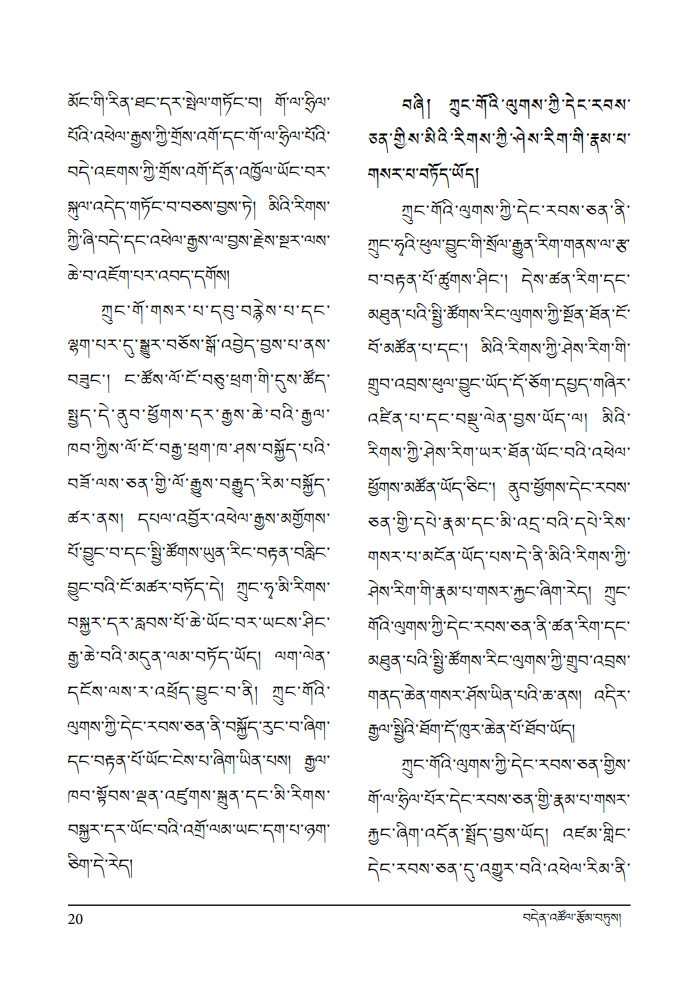 མོང་གི་རིན་ཐང་དར་སྤེལ་གཏོང་བ། གོ་ལ་ཧྲིལ་
པོའི་འཕེལ་རྒྱས་ཀྱི་གྲོས་འགོ་དང་གོ་ལ་ཧྲིལ་པོའི་
བདེ་འཇགས་ཀྱི་གྲོས་འགོ་དོན་འཁྱོལ་ཡོང་བར་
སྐུལ་འདེད་གཏོང་བ་བཅས་བྱས་ཏེ། མིའི་རིགས་
ཀྱི་ཞི་བདེ་དང་འཕེལ་རྒྱས་ལ་བྱས་རྗེས་སྔར་ལས་
ཆེ་བ་འཇོག་པར་འབད་དགོས།
ཀྲུང་གོ་གསར་པ་དབུ་བརྙེས་པ་དང་
ལྷག་པར་དུ་སྒྱུར་བཅོས་སྒོ་འབྱེད་བྱས་པ་ནས་
བཟུང་། ང་ཚོས་ལོ་ངོ་བཅུ་ཕྲག་གི་དུས་ཚོད་
སྤྱད་དེ་ནུབ་ཕྱོགས་དར་རྒྱས་ཆེ་བའི་རྒྱལ་
ཁབ་ཀྱིས་ལོ་ངོ་བརྒྱ་ཕྲག་ཁ་ཤས་བསྐྱོད་པའི་
བཟོ་ལས་ཅན་གྱི་ལོ་རྒྱུས་བརྒྱུད་རིམ་བསྐྱོད་
ཚར་ནས། དཔལ་འབྱོར་འཕེལ་རྒྱས་མགྱོགས་
པོ་བྱུང་བ་དང་སྤྱི་ཚོགས་ཡུན་རིང་བརྟན་བརླིང་
བྱུང་བའི་ངོ་མཚར་བཏོད་དེ། ཀྲུང་ཧྭ་མི་རིགས་
བསྐྱར་དར་རླབས་པོ་ཆེ་ཡོང་བར་ཡངས་ཤིང་
རྒྱ་ཆེ་བའི་མདུན་ལམ་བཏོད་ཡོད། ལག་ལེན་
དངོས་ལས་ར་འཕྲོད་བྱུང་བ་ནི། ཀྲུང་གོའི་
ལུགས་ཀྱི་དེང་རབས་ཅན་ནི་བསྐྱོད་རུང་བ་ཞིག་
དང་བརྟན་པོ་ཡོང་ངེས་པ་ཞིག་ཡིན་པས། རྒྱལ་
ཁབ་སྟོབས་ལྡན་འཛུགས་སྐྲུན་དང་མི་རིགས་
བསྐྱར་དར་ཡོང་བའི་འགྲོ་ལམ་ཡང་དག་པ་ཉག་
ཅིག་དེ་རེད།
བཞི། ཀྲུང་གོའི་ལུགས་ཀྱི་དེང་རབས་
ཅན་གྱིས་མིའི་རིགས་ཀྱི་ཤེས་རིག་གི་རྣམ་པ་
གསར་པ་བཏོད་ཡོད།
ཀྲུང་གོའི་ལུགས་ཀྱི་དེང་རབས་ཅན་ནི་
ཀྲུང་ཧྭའི་ཕུལ་བྱུང་གི་སྲོལ་རྒྱུན་རིག་གནས་ལ་རྩ་
བ་བརྟན་པོ་ཚུགས་ཤིང་། དེས་ཚན་རིག་དང་
མཐུན་པའི་སྤྱི་ཚོགས་རིང་ལུགས་ཀྱི་སྔོན་ཐོན་ངོ་
བོ་མཚོན་པ་དང་། མིའི་རིགས་ཀྱི་ཤེས་རིག་གི་
གྲུབ་འབྲས་ཕུལ་བྱུང་ཡོད་དོ་ཅོག་དཔྱད་གཞིར་
འཛིན་པ་དང་བསྡུ་ལེན་བྱས་ཡོད་ལ། མིའི་
རིགས་ཀྱི་ཤེས་རིག་ཡར་ཐོན་ཡོང་བའི་འཕེལ་
ཕྱོགས་མཚོན་ཡོད་ཅིང་། ནུབ་ཕྱོགས་དེང་རབས་
ཅན་གྱི་དཔེ་རྣམ་དང་མི་འདྲ་བའི་དཔེ་རིས་
གསར་པ་མངོན་ཡོད་པས་དེ་ནི་མིའི་རིགས་ཀྱི་
ཤེས་རིག་གི་རྣམ་པ་གསར་རྐྱང་ཞིག་རེད། ཀྲུང་
གོའི་ལུགས་ཀྱི་དེང་རབས་ཅན་ནི་ཚན་རིག་དང་
མཐུན་པའི་སྤྱི་ཚོགས་རིང་ལུགས་ཀྱི་གྲུབ་འབྲས་
གནད་ཆེན་གསར་ཤོས་ཡིན་པའི་ཆ་ནས། འདིར་
རྒྱལ་སྤྱིའི་ཐོག་དོ་ཁུར་ཆེན་པོ་ཐོབ་ཡོད།
ཀྲུང་གོའི་ལུགས་ཀྱི་དེང་རབས་ཅན་གྱིས་
གོ་ལ་ཧྲིལ་པོར་དེང་རབས་ཅན་གྱི་རྣམ་པ་གསར་
རྐྱང་ཞིག་འདོན་སྤྲོད་བྱས་ཡོད། འཛམ་གླིང་
དེང་རབས་ཅན་དུ་འགྱུར་བའི་འཕེལ་རིམ་ནི་
20
བདེན་འཚོལ་རྩོམ་བཏུས།